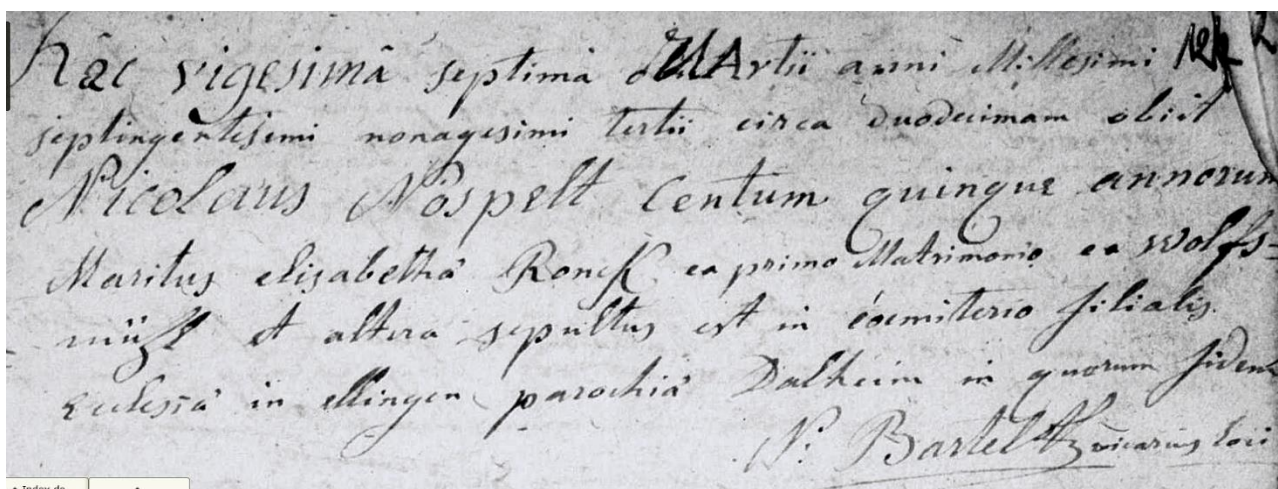 Hac vigesimâ septima Martii anni Millesimi
septingentesimi nonagesimi tertii circa duodecimam obiit
Nicolaus Nospelt Centum quinque annorum
Maritus elisabetha Ronck ex primo Matrimonio ex wolfs=
mühl et altera sepultus est in coemiterio filialis
Ecclesiâ in ellingen parochiâ Dalheim in quorum fidem
N. Barteltz vicarius loci
Index de